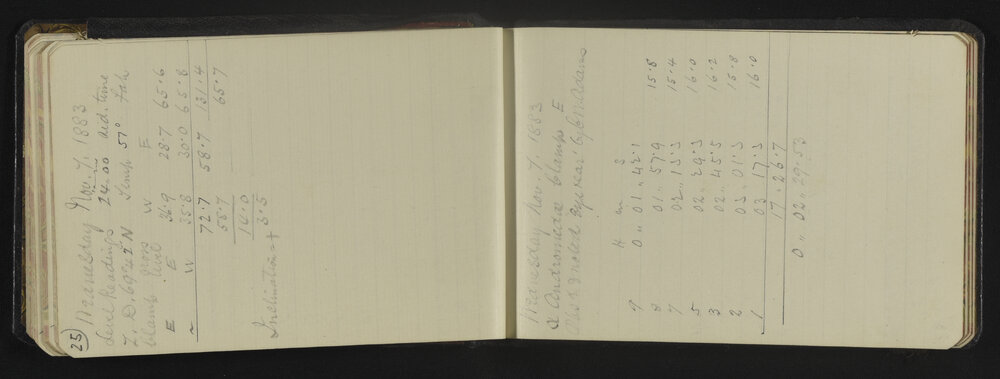 25
Wednesday Nov. 7. 1883
Level Readings 24.00 sid. time
Z. D. 69° 42' N Temp 57° Fah
Clamp gross level W E
E E 36.9 28.7 65.6
W 35.8 30.0 65.8
72.7 58.7 131.4
58.7 65.7
14.0
Inclination = + 3.5
Wednesday Nov. 7. 1883
α Andromeda Clamp E
Obs & noted eye & ear by C M Adams
H m s
9 0 ,, 01 ,, 42.1
8 01 ,, 57.9 15.8
7 02 ,, 13.3 15.4
5 02 ,, 29.3 16.0
3 02 ,, 45.5 16.2
2 03 ,, 01.3 15.8
1 03 17.3 16.0
17.26.7
0 ,, 02 ,, 29.53